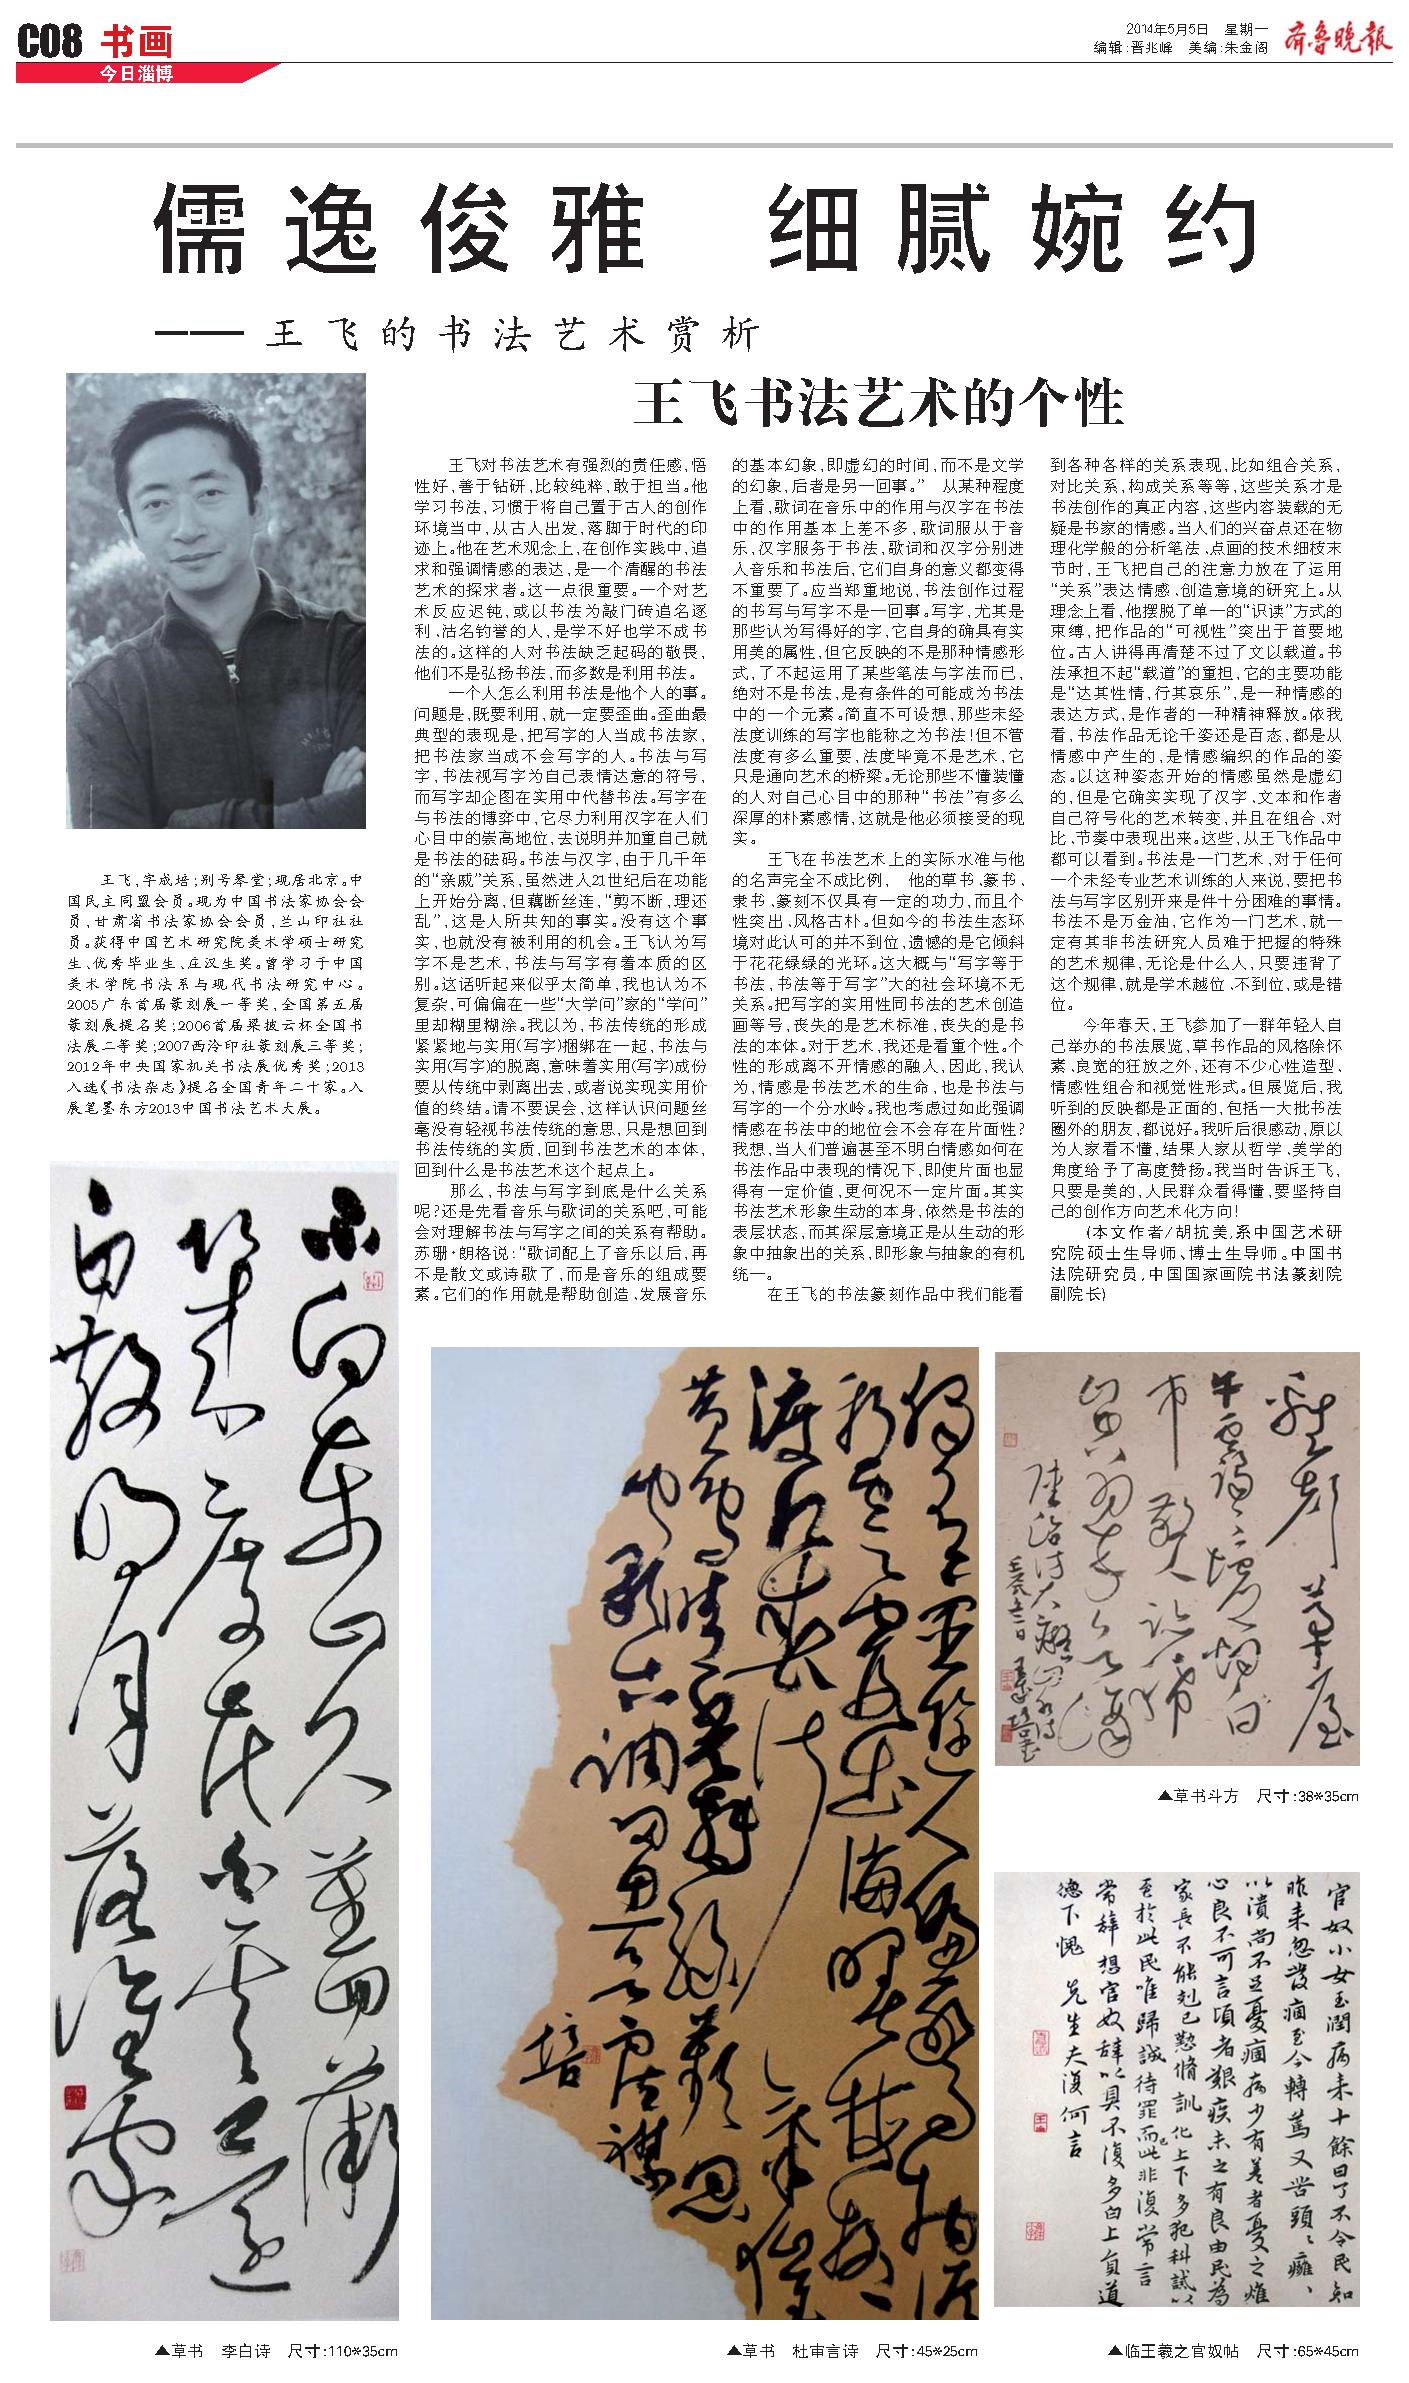 C08 书画
今日淄博
2014年5月5日 星期一
编辑:晋兆峰 美编:朱金阁
齐鲁晚报
儒逸俊雅 细腻婉约
——王飞的书法艺术赏析
王飞书法艺术的个性
王飞,字成培;别号琴堂;现居北京。中
国民主同盟会员。现为中国书法家协会会
员,甘肃省书法家协会会员,兰山印社社
员。获得中国艺术研究院美术学硕士研究
生、优秀毕业生、庄汉生奖。曾学习于中国
美术学院书法系与现代书法研究中心。
2005广东首届篆刻展一等奖,全国第五届
篆刻展提名奖;2006首届梁披云杯全国书
法展二等奖;2007西泠印社篆刻展三等奖;
2012年中央国家机关书法展优秀奖;2013
入选《书法杂志》提名全国青年二十家。入
展笔墨东方2013中国书法艺术大展。
王飞对书法艺术有强烈的责任感,悟
性好,善于钻研,比较纯粹,敢于担当。他
学习书法,习惯于将自己置于古人的创作
环境当中,从古人出发,落脚于时代的印
迹上。他在艺术观念上、在创作实践中,追
求和强调情感的表达,是一个清醒的书法
艺术的探求者。这一点很重要。一个对艺
术反应迟钝,或以书法为敲门砖追名逐
利、沽名钓誉的人,是学不好也学不成书
法的。这样的人对书法缺乏起码的敬畏,
他们不是弘扬书法,而多数是利用书法。
一个人怎么利用书法是他个人的事。
问题是,既要利用,就一定要歪曲。歪曲最
典型的表现是,把写字的人当成书法家,
把书法家当成不会写字的人。书法与写
字,书法视写字为自己表情达意的符号,
而写字却企图在实用中代替书法。写字在
与书法的博弈中,它尽力利用汉字在人们
心目中的崇高地位,去说明并加重自己就
是书法的砝码。书法与汉字,由于几千年
的“亲戚”关系,虽然进入21世纪后在功能
上开始分离,但藕断丝连,“剪不断,理还
乱”,这是人所共知的事实。没有这个事
实,也就没有被利用的机会。王飞认为写
字不是艺术,书法与写字有着本质的区
别。这话听起来似乎太简单,我也认为不
复杂,可偏偏在一些“大学问”家的“学问”
里却糊里糊涂。我以为,书法传统的形成
紧紧地与实用(写字)捆绑在一起,书法与
实用(写字)的脱离,意味着实用(写字)成份
要从传统中剥离出去,或者说实现实用价
值的终结。请不要误会,这样认识问题丝
毫没有轻视书法传统的意思,只是想回到
书法传统的实质,回到书法艺术的本体,
回到什么是书法艺术这个起点上。
那么,书法与写字到底是什么关系
呢?还是先看音乐与歌词的关系吧,可能
会对理解书法与写字之间的关系有帮助。
苏珊·朗格说:“歌词配上了音乐以后,再
不是散文或诗歌了,而是音乐的组成要
素。它们的作用就是帮助创造、发展音乐
的基本幻象,即虚幻的时间,而不是文学
的幻象,后者是另一回事。” 从某种程度
上看,歌词在音乐中的作用与汉字在书法
中的作用基本上差不多,歌词服从于音
乐,汉字服务于书法,歌词和汉字分别进
入音乐和书法后,它们自身的意义都变得
不重要了。应当郑重地说,书法创作过程
的书写与写字不是一回事。写字,尤其是
那些认为写得好的字,它自身的确具有实
用美的属性,但它反映的不是那种情感形
式,了不起运用了某些笔法与字法而已,
绝对不是书法,是有条件的可能成为书法
中的一个元素。简直不可设想,那些未经
法度训练的写字也能称之为书法!但不管
法度有多么重要,法度毕竟不是艺术,它
只是通向艺术的桥梁。无论那些不懂装懂
的人对自己心目中的那种“书法”有多么
深厚的朴素感情,这就是他必须接受的现
实。
王飞在书法艺术上的实际水准与他
的名声完全不成比例, 他的草书、篆书、
隶书、篆刻不仅具有一定的功力,而且个
性突出、风格古朴。但如今的书法生态环
境对此认可的并不到位,遗憾的是它倾斜
于花花绿绿的光环。这大概与“写字等于
书法,书法等于写字”大的社会环境不无
关系。把写字的实用性同书法的艺术创造
画等号,丧失的是艺术标准,丧失的是书
法的本体。对于艺术,我还是看重个性。个
性的形成离不开情感的融入,因此,我认
为,情感是书法艺术的生命,也是书法与
写字的一个分水岭。我也考虑过如此强调
情感在书法中的地位会不会存在片面性?
我想,当人们普遍甚至不明白情感如何在
书法作品中表现的情况下,即使片面也显
得有一定价值,更何况不一定片面。其实
书法艺术形象生动的本身,依然是书法的
表层状态,而其深层意境正是从生动的形
象中抽象出的关系,即形象与抽象的有机
统一。
在王飞的书法篆刻作品中我们能看
到各种各样的关系表现,比如组合关系,
对比关系,构成关系等等,这些关系才是
书法创作的真正内容,这些内容装载的无
疑是书家的情感。当人们的兴奋点还在物
理化学般的分析笔法、点画的技术细枝末
节时,王飞把自己的注意力放在了运用
“关系”表达情感、创造意境的研究上。从
理念上看,他摆脱了单一的“识读”方式的
束缚,把作品的“可视性”突出于首要地
位。古人讲得再清楚不过了文以载道。书
法承担不起“载道”的重担,它的主要功能
是“达其性情,行其哀乐”,是一种情感的
表达方式,是作者的一种精神释放。依我
看,书法作品无论千姿还是百态,都是从
情感中产生的,是情感编织的作品的姿
态。以这种姿态开始的情感虽然是虚幻
的,但是它确实实现了汉字、文本和作者
自己符号化的艺术转变,并且在组合、对
比、节奏中表现出来。这些,从王飞作品中
都可以看到。书法是一门艺术,对于任何
一个未经专业艺术训练的人来说,要把书
法与写字区别开来是件十分困难的事情。
书法不是万金油,它作为一门艺术,就一
定有其非书法研究人员难于把握的特殊
的艺术规律,无论是什么人,只要违背了
这个规律,就是学术越位、不到位,或是错
位。
今年春天,王飞参加了一群年轻人自
己举办的书法展览,草书作品的风格除怀
素、良宽的狂放之外,还有不少心性造型、
情感性组合和视觉性形式。但展览后,我
听到的反映都是正面的,包括一大批书法
圈外的朋友,都说好。我听后很感动,原以
为人家看不懂,结果人家从哲学、美学的
角度给予了高度赞扬。我当时告诉王飞,
只要是美的,人民群众看得懂,要坚持自
己的创作方向艺术化方向!
(本文作者/胡抗美,系中国艺术研
究院硕士生导师、博士生导师。中国书
法院研究员,中国国家画院书法篆刻院
副院长)
不向东山久 蔷薇
几度花 白云还
自散 明月落谁家
独有宦游人 偏惊物候
新 云霞出海曙 梅柳
渡江春 淑气催
黄鸟 晴光转绿蘋 忽
闻歌古调 归思欲沾襟
培
▲草书斗方 尺寸:38*35cm
官奴小女玉潤病来十餘日了不令民知
昨来忽發痼至今轉篤又苦頭癰
以潰尚不足憂痼病少有差者憂之燋
心良不可言頃者艱疾未之有良由民為
家長不能剋己懃脩訓化上下多犯科誡以
至於此民唯歸誠待罪而已此非復常言
常辭想官奴辭以具不復多白上負道
德下愧先生夫復何言
▲草书 李白诗 尺寸:110*35cm
▲草书 杜审言诗 尺寸:45*25cm
▲临王羲之官奴帖 尺寸:65*45cm